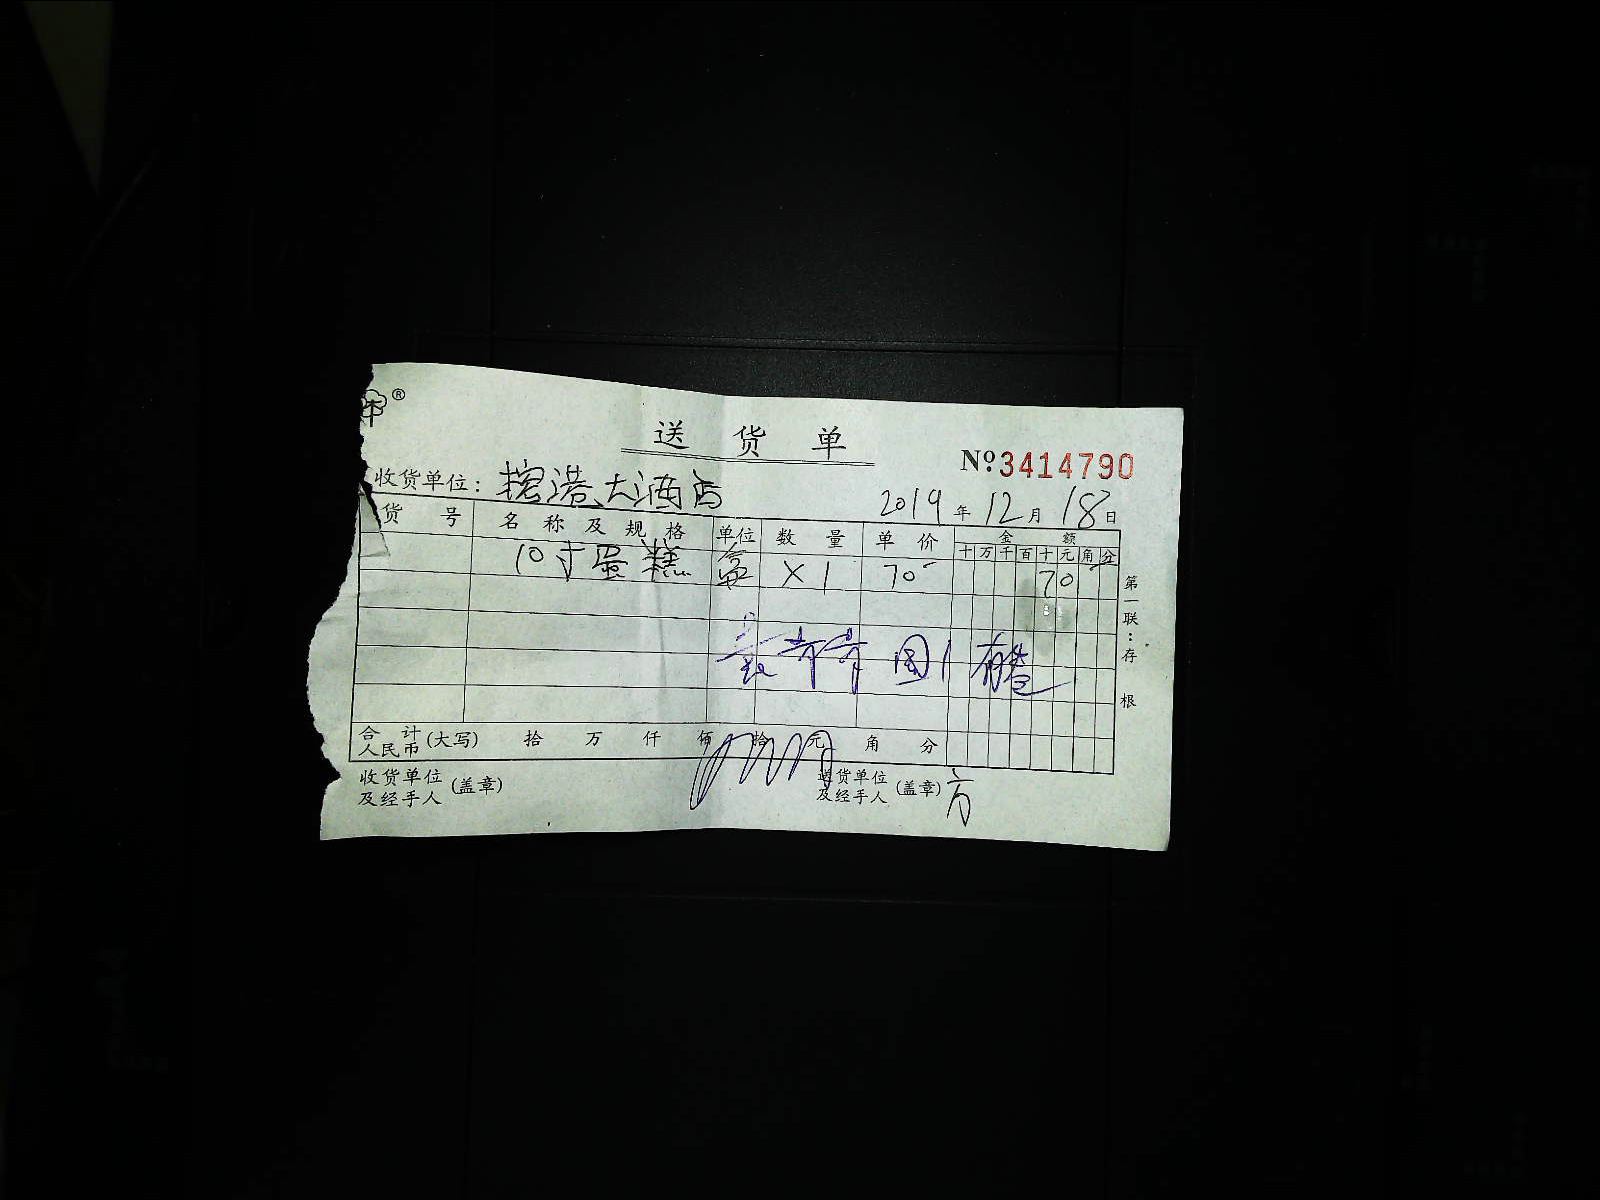 ®
送货单
Nº3414790
收货单位：挖港大酒店
2019年12月18日
货号 名称及规格 单位 数量 单价 金额
十万千百十元角分
10寸蛋糕 盒 X1 70 70
第一联：存根
合计人民币(大写) 拾 万 仟 佰 拾 元 角 分
收货单位及经手人(盖章) 送货单位及经手人(盖章) 方